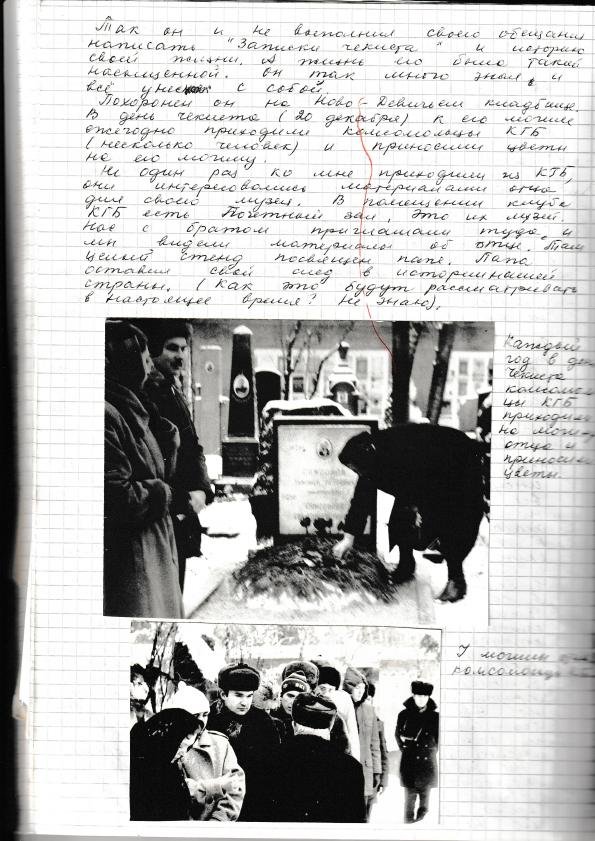 Так он и не выполнил своего обещания
написать "Записки чекиста" и историю
своей жизни. А жизнь его была такой
насыщенной. Он так много знал и
всё унес с собой.
Похоронен он на Ново-Девичьем кладбище.
В день чекиста (20 декабря) к его могиле
ежегодно приходили комсомольцы КГБ
(несколько человек) и приносили цветы
на его могилу.
Не один раз ко мне приходили из КГБ,
они интересовались материалами отца
для своего музея. В помещении клуба
КГБ есть Почетный зал, это их музей.
Нас с братом приглашали туда, и
мы видели материалы об отце. Там
целый стенд посвящен папе. Папа
оставил свой след в истории нашей
страны. (Как это будут рассматривать
в настоящее время? Не знаю).
Каждый
год в день
чекиста
комсомоль
цы КГБ
приходили
на могилу
отца и
приносили
цветы.
У могилы
комсомольцы